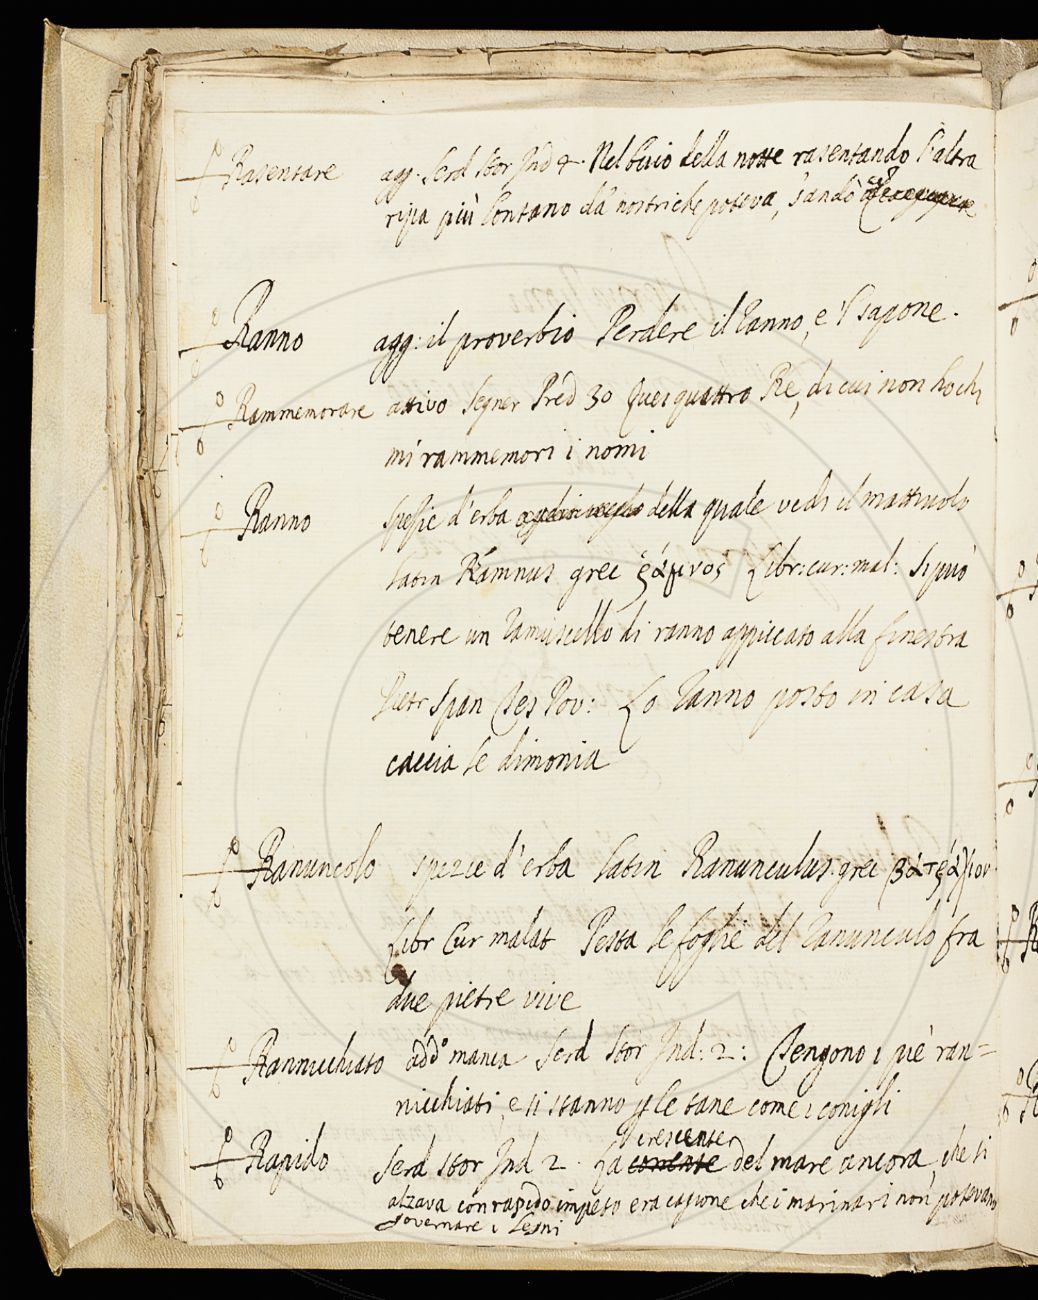 Rasentare agg. Serd Stor Ind 4. Nel buio della notte rasentando l'altra
ripa più lontano da nostri che poteva, s'andò
Ranno agg: il proverbio Perdere il Ranno, e 'l sapone.
Rammemorare attivo Segner Pred 30 Quei quattro Re, di cui non ho chi
mi rammemori i nomi
Ranno spezie d'erba della quale vedi il mattiuolo
latin Rámnus grec ῥάμνος Libr: cur: mal: Si può
tenere un ramuscello di ranno appiccato alla finestra
Pietr Span Tes Pov: Lo Ranno posto in casa
caccia le dimonia
Ranuncolo spezie d'erba latin Ranunculus grec βάτράχιον
Libr Cur malat Pesta le foglie del Ranunculo fra
due pietre vive
Rannicchiato add.º manca Serd Stor Ind: 2: Tengono i piè ran=
nicchiati, e si stanno p le tane come i conigli
Rapido Serd Stor Ind 2. La corrente crescente del mare ancora, che si
alzava con rapido impeto era cagione che i marinari non potevano
governare i legni